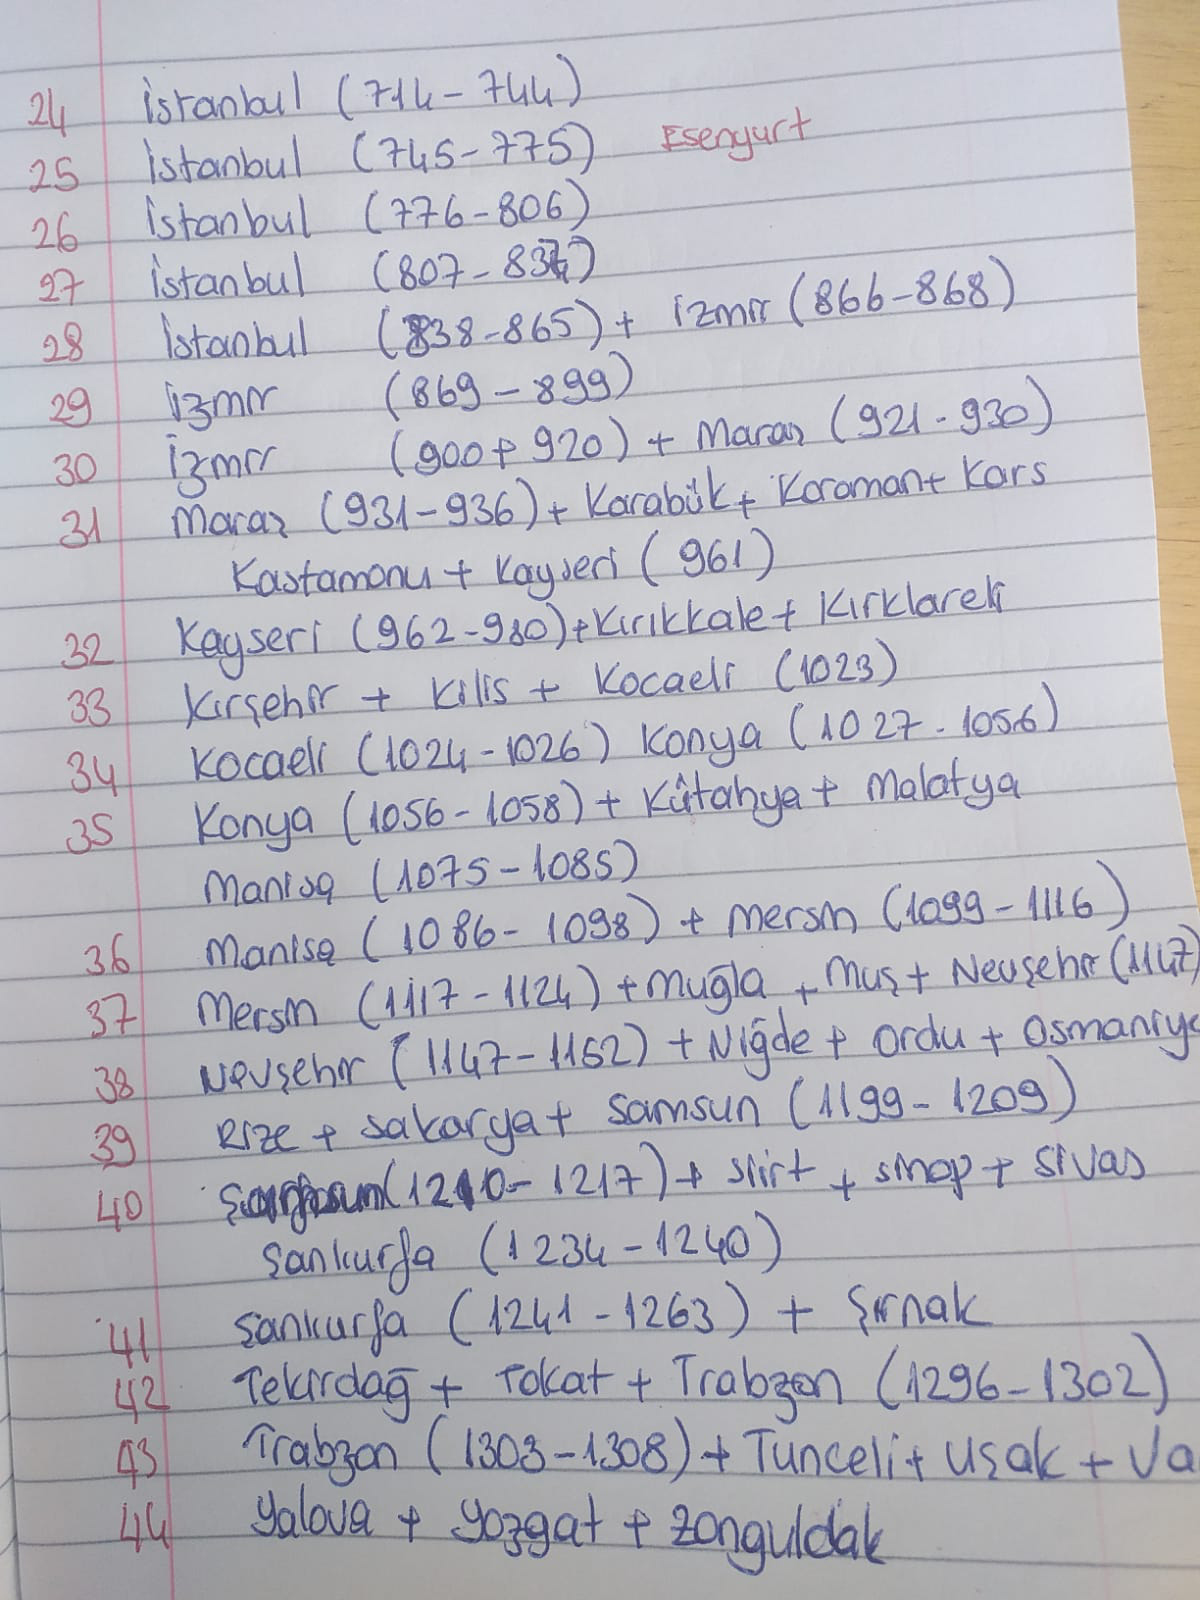 24 İstanbul (714-744)
25 İstanbul (745-775) Esenyurt
26 İstanbul (776-806)
27 İstanbul (807-837)
28 İstanbul (838-865) + İzmir (866-868)
29 İzmir (869-899)
30 İzmir (900+920) + Maraş (921-930)
31 Maraş (931-936) + Karabük + Karaman + Kars
Kastamonu + Kayseri (961)
32 Kayseri (962-980) + Kırıkkale + Kırklareli
33 Kırşehir + Kilis + Kocaeli (1023)
34 Kocaeli (1024-1026) Konya (1027-1056)
35 Konya (1056-1058) + Kütahya + Malatya
Manisa (1075-1085)
36 Manisa (1086-1098) + Mersin (1099-1116)
37 Mersin (1117-1124) + Muğla + Muş + Nevşehir (1147)
38 Nevşehir (1147-1162) + Niğde + Ordu + Osmaniye
39 Rize + Sakarya + Samsun (1199-1209)
40 (1210-1217) + Siirt + Sinop + Sivas
Şanlıurfa (1234-1240)
41 Şanlıurfa (1241-1263) + Şırnak
42 Tekirdağ + Tokat + Trabzon (1296-1302)
43 Trabzon (1303-1308) + Tunceli + Uşak + Va
44 Yalova + Yozgat + Zonguldak